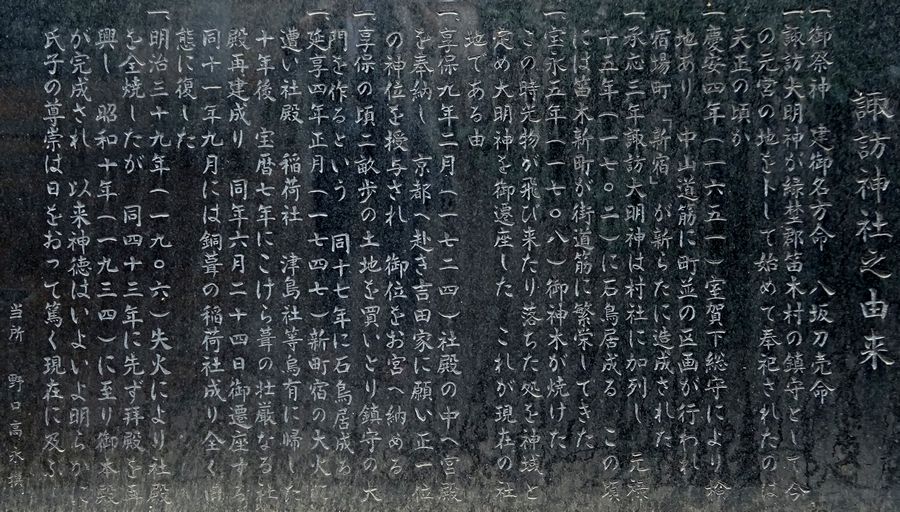 諏訪神社之由来
一、御祭神 建御名方命 八坂刀売命
一、諏訪大明神が緑埜郡笛木村の鎮守として今
の元宮の地を卜して始めて奉祀されたのは
天正の頃か
一、慶安四年(一六五一)室賀下総守により検
地あり 中山道筋に町並の区画が行われ
宿場町「新宿」が新らたに造成された
一、承応三年諏訪大明神は村社に加列し 元禄
十五年(一七〇二)に石鳥居成る この頃
には笛木新町が街道筋に繁栄してきた
一、宝永五年(一七〇八)御神木が焼けた
この時光物が飛び来たり落ちた処を神域と
定め大明神を御遷座した これが現在の社
地である由
一、享保九年二月(一七二四)社殿の中へ宮殿
を奉納し 京都へ赴き吉田家に願い正一位
の神位を授与され 御位をお宮へ納める
一、享保の頃二畝歩の土地を買いとり鎮守の大
門を作るという 同十七年に石鳥居成る
一、延享四年正月(一七四七)新町宿の大火に
遭い社殿 稲荷社 津島社等烏有に帰した
十年後 宝暦七年にこけら葺の壮厳なる社
殿再建成り 同年六月二十四日御遷座する
同十一年九月には銅葺の稲荷社成り全く旧
態に復した
一、明治三十九年(一九〇六)失火により社殿
を全焼したが 同四十三年に先ず拝殿を再
興し 昭和十年(一九三四)に至り御本殿
が完成され 以来神徳はいよいよ明らかに
氏子の尊崇は日をおって篤く現在に及ぶ
当所 野口高永 撰